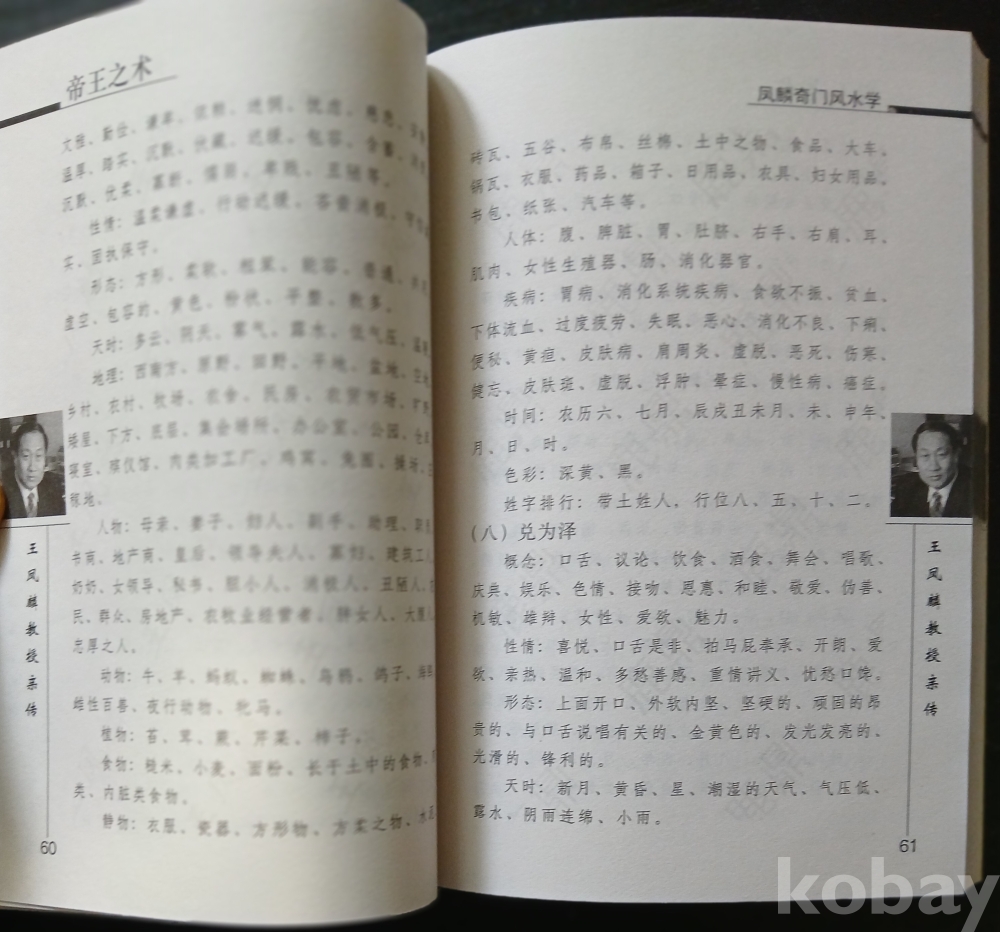 帝王之术
温厚、踏实、沉默、伏藏、迟缓、包容、
沉默、优柔、
性情：温柔谦虚、行动迟缓、吝啬消极、
实、固执保守。
形态：方形、柔软、粗糙、能容、普通、
虚空、包容的、黄色、粉状、平整、数多。
天时：多云、阴天、雾气、露水、低气压、
地理：西南方、原野、田野、平地、盆地、
乡村、农村、牧场、农舍、民房、农贸市场、
矮屋、下方、底层、集会场所、办公室、公园、仓
寝室、殡仪馆、肉类加工厂、鸡窝、兔圈、操场、
稼地。
人物：母亲、妻子、妇人、副手、助理、
书商、地产商、皇后、领导夫人、寡妇、建筑工
奶奶、女领导、秘书、胆小人、消极人、丑陋人、
民、群众、房地产、农牧业经营者、胖女人、大腹
忠厚之人。
动物：牛、羊、蚂蚁、蜘蛛、乌鸦、鸽子、
雌性百兽、夜行动物、牝马。
植物：苔、茸、蕨、芹菜、柿子。
食物：糙米、小麦、面粉、长于土中的食物、
类、内脏类食物。
静物：衣服、瓷器、方形物、方柔之物、水泥
60
王凤麟教授亲传
凤麟奇门风水学
砖瓦、五谷、布帛、丝棉、土中之物、食品、大车、
锅瓦、衣服、药品、箱子、日用品、农具、妇女用品、
书包、纸张、汽车等。
人体：腹、脾脏、胃、肚脐、右手、右肩、耳、
肌肉、女性生殖器、肠、消化器官。
疾病：胃病、消化系统疾病、食欲不振、贫血、
下体流血、过度疲劳、失眠、恶心、消化不良、下痢、
便秘、黄疸、皮肤病、肩周炎、虚脱、恶死、伤寒、
健忘、皮肤斑、虚脱、浮肿、晕症、慢性病、癌症。
时间：农历六、七月、辰戌丑未月、未、申年、
月、日、时。
色彩：深黄、黑。
姓字排行：带土姓人，行位八、五、十、二。
（八）兑为泽
概念：口舌、议论、饮食、酒食、舞会、唱歌、
庆典、娱乐、色情、接吻、恩惠、和睦、敬爱、伪善、
机敏、雄辩、女性、爱欲、魅力。
性情：喜悦、口舌是非、拍马屁奉承、开朗、爱
欲、亲热、温和、多愁善感、重情讲义、忧愁口馋。
形态：上面开口、外软内坚、坚硬的、顽固的昂
贵的、与口舌说唱有关的、金黄色的、发光发亮的、
光滑的、锋利的。
天时：新月、黄昏、星、潮湿的天气、气压低、
露水、阴雨连绵、小雨。
61
王凤麟教授亲传
kobay